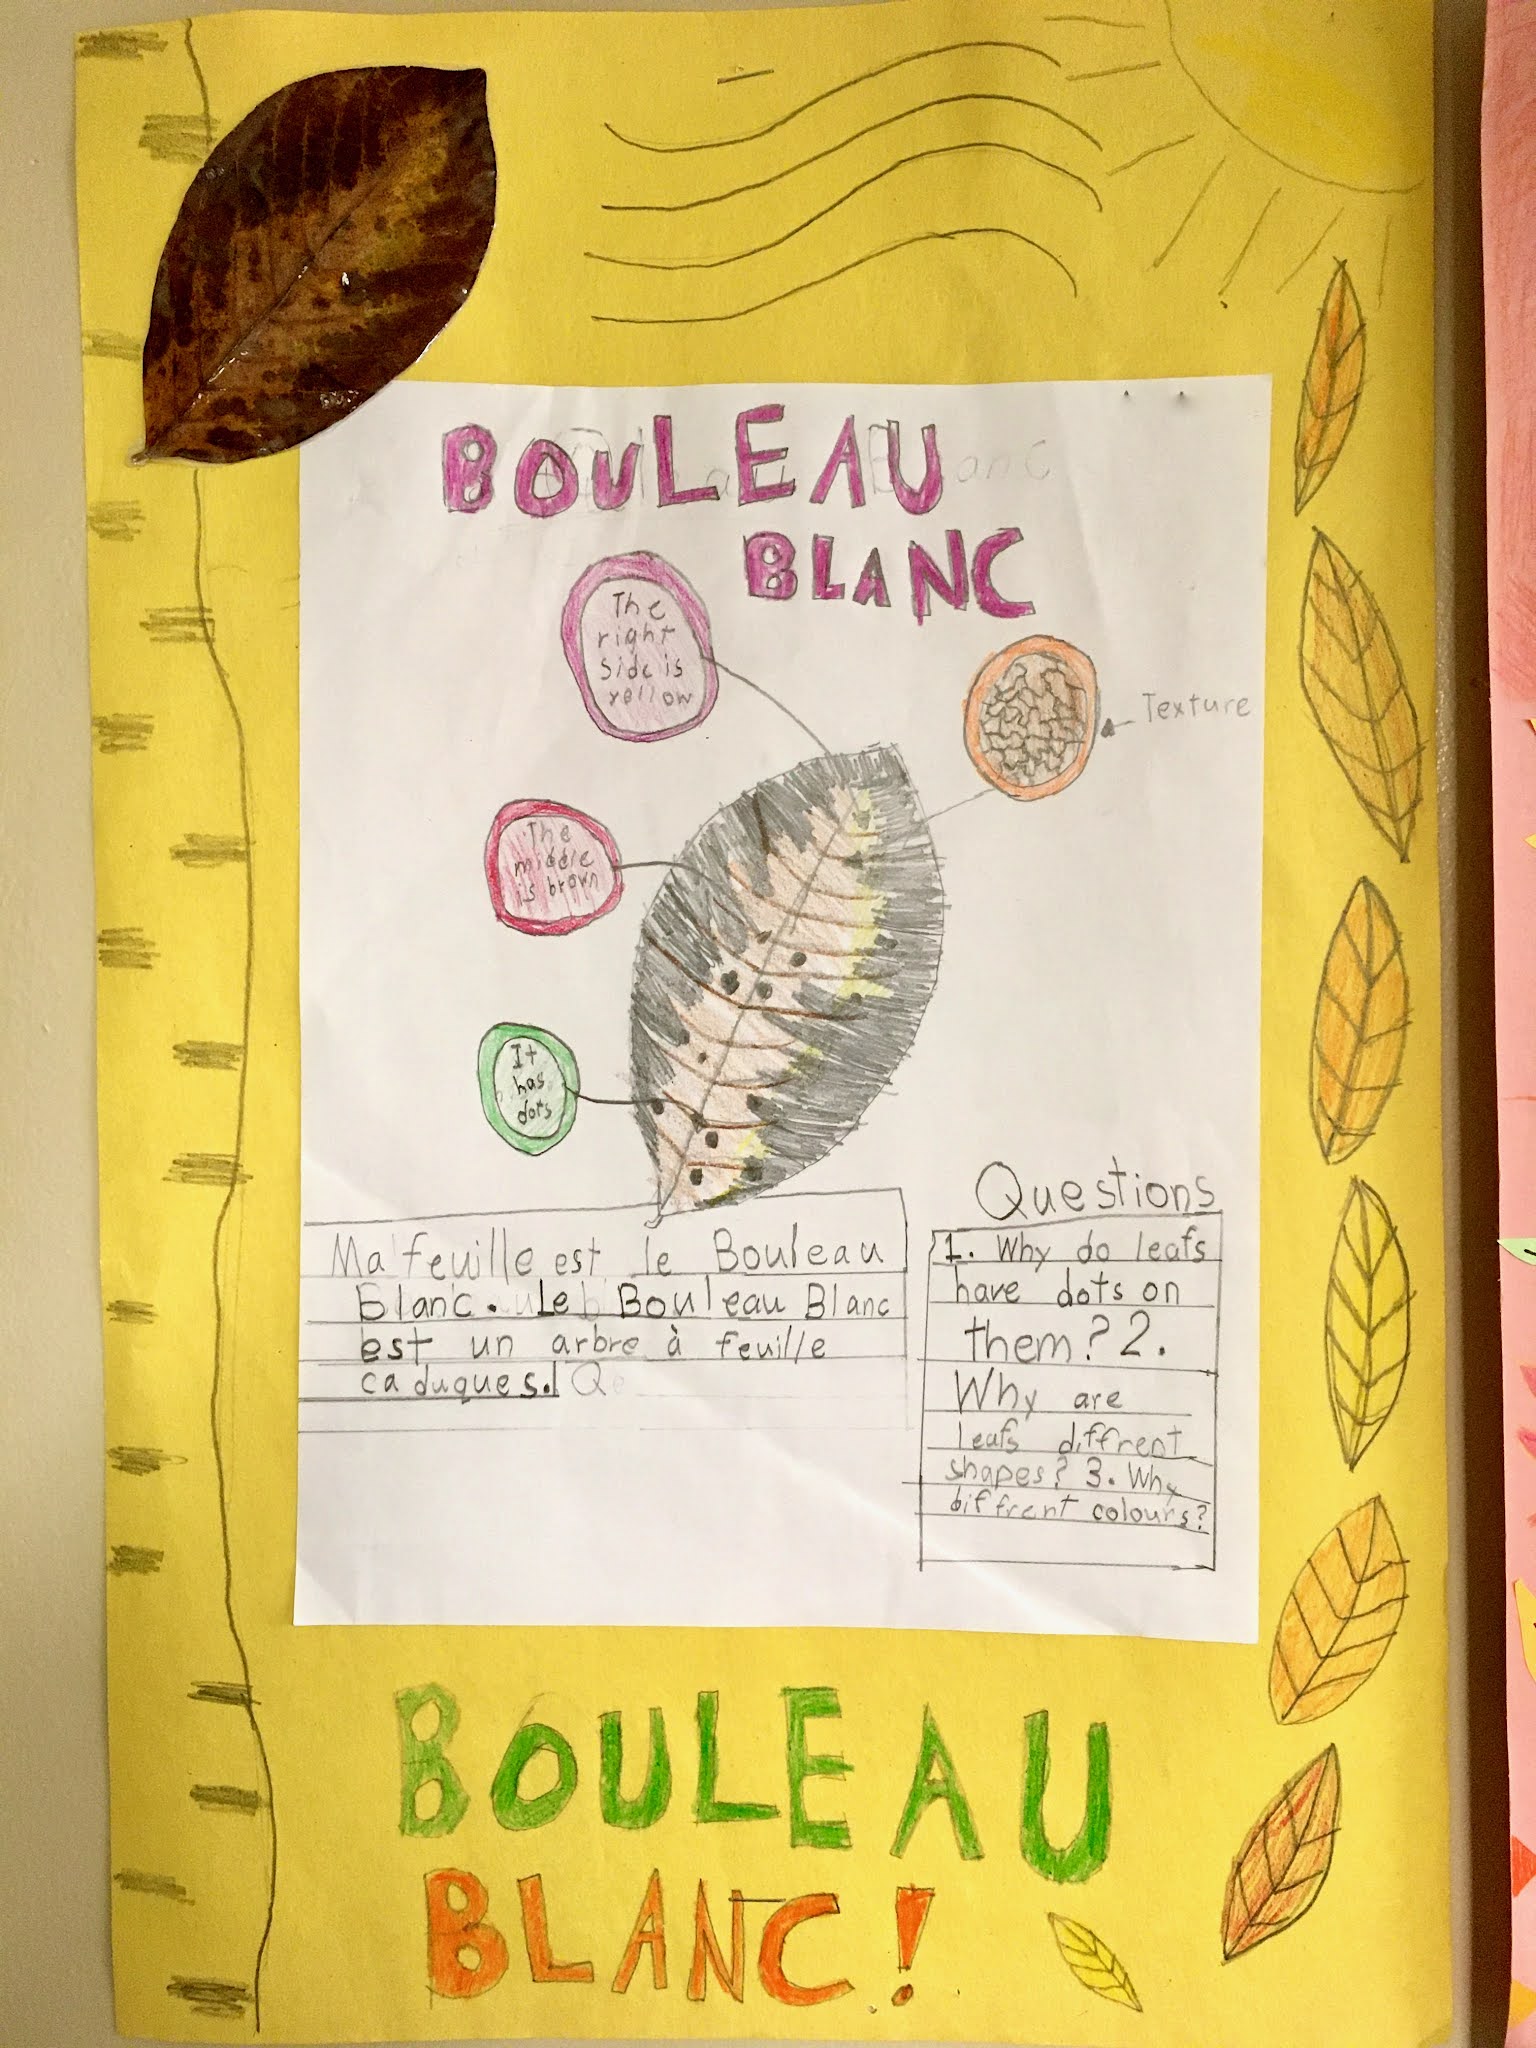 BOULEAU
BLANC
The
right
side is
yellow
Texture
The
middle
is brown
It
has
dots
Ma feuille est le Bouleau
Blanc. Le Bouleau Blanc
est un arbre à feuille
caduques.
Questions
1. Why do leafs
have dots on
them? 2.
Why are
leafs diffrent
shapes? 3. Why
diffrent colours?
BOULEAU
BLANC!